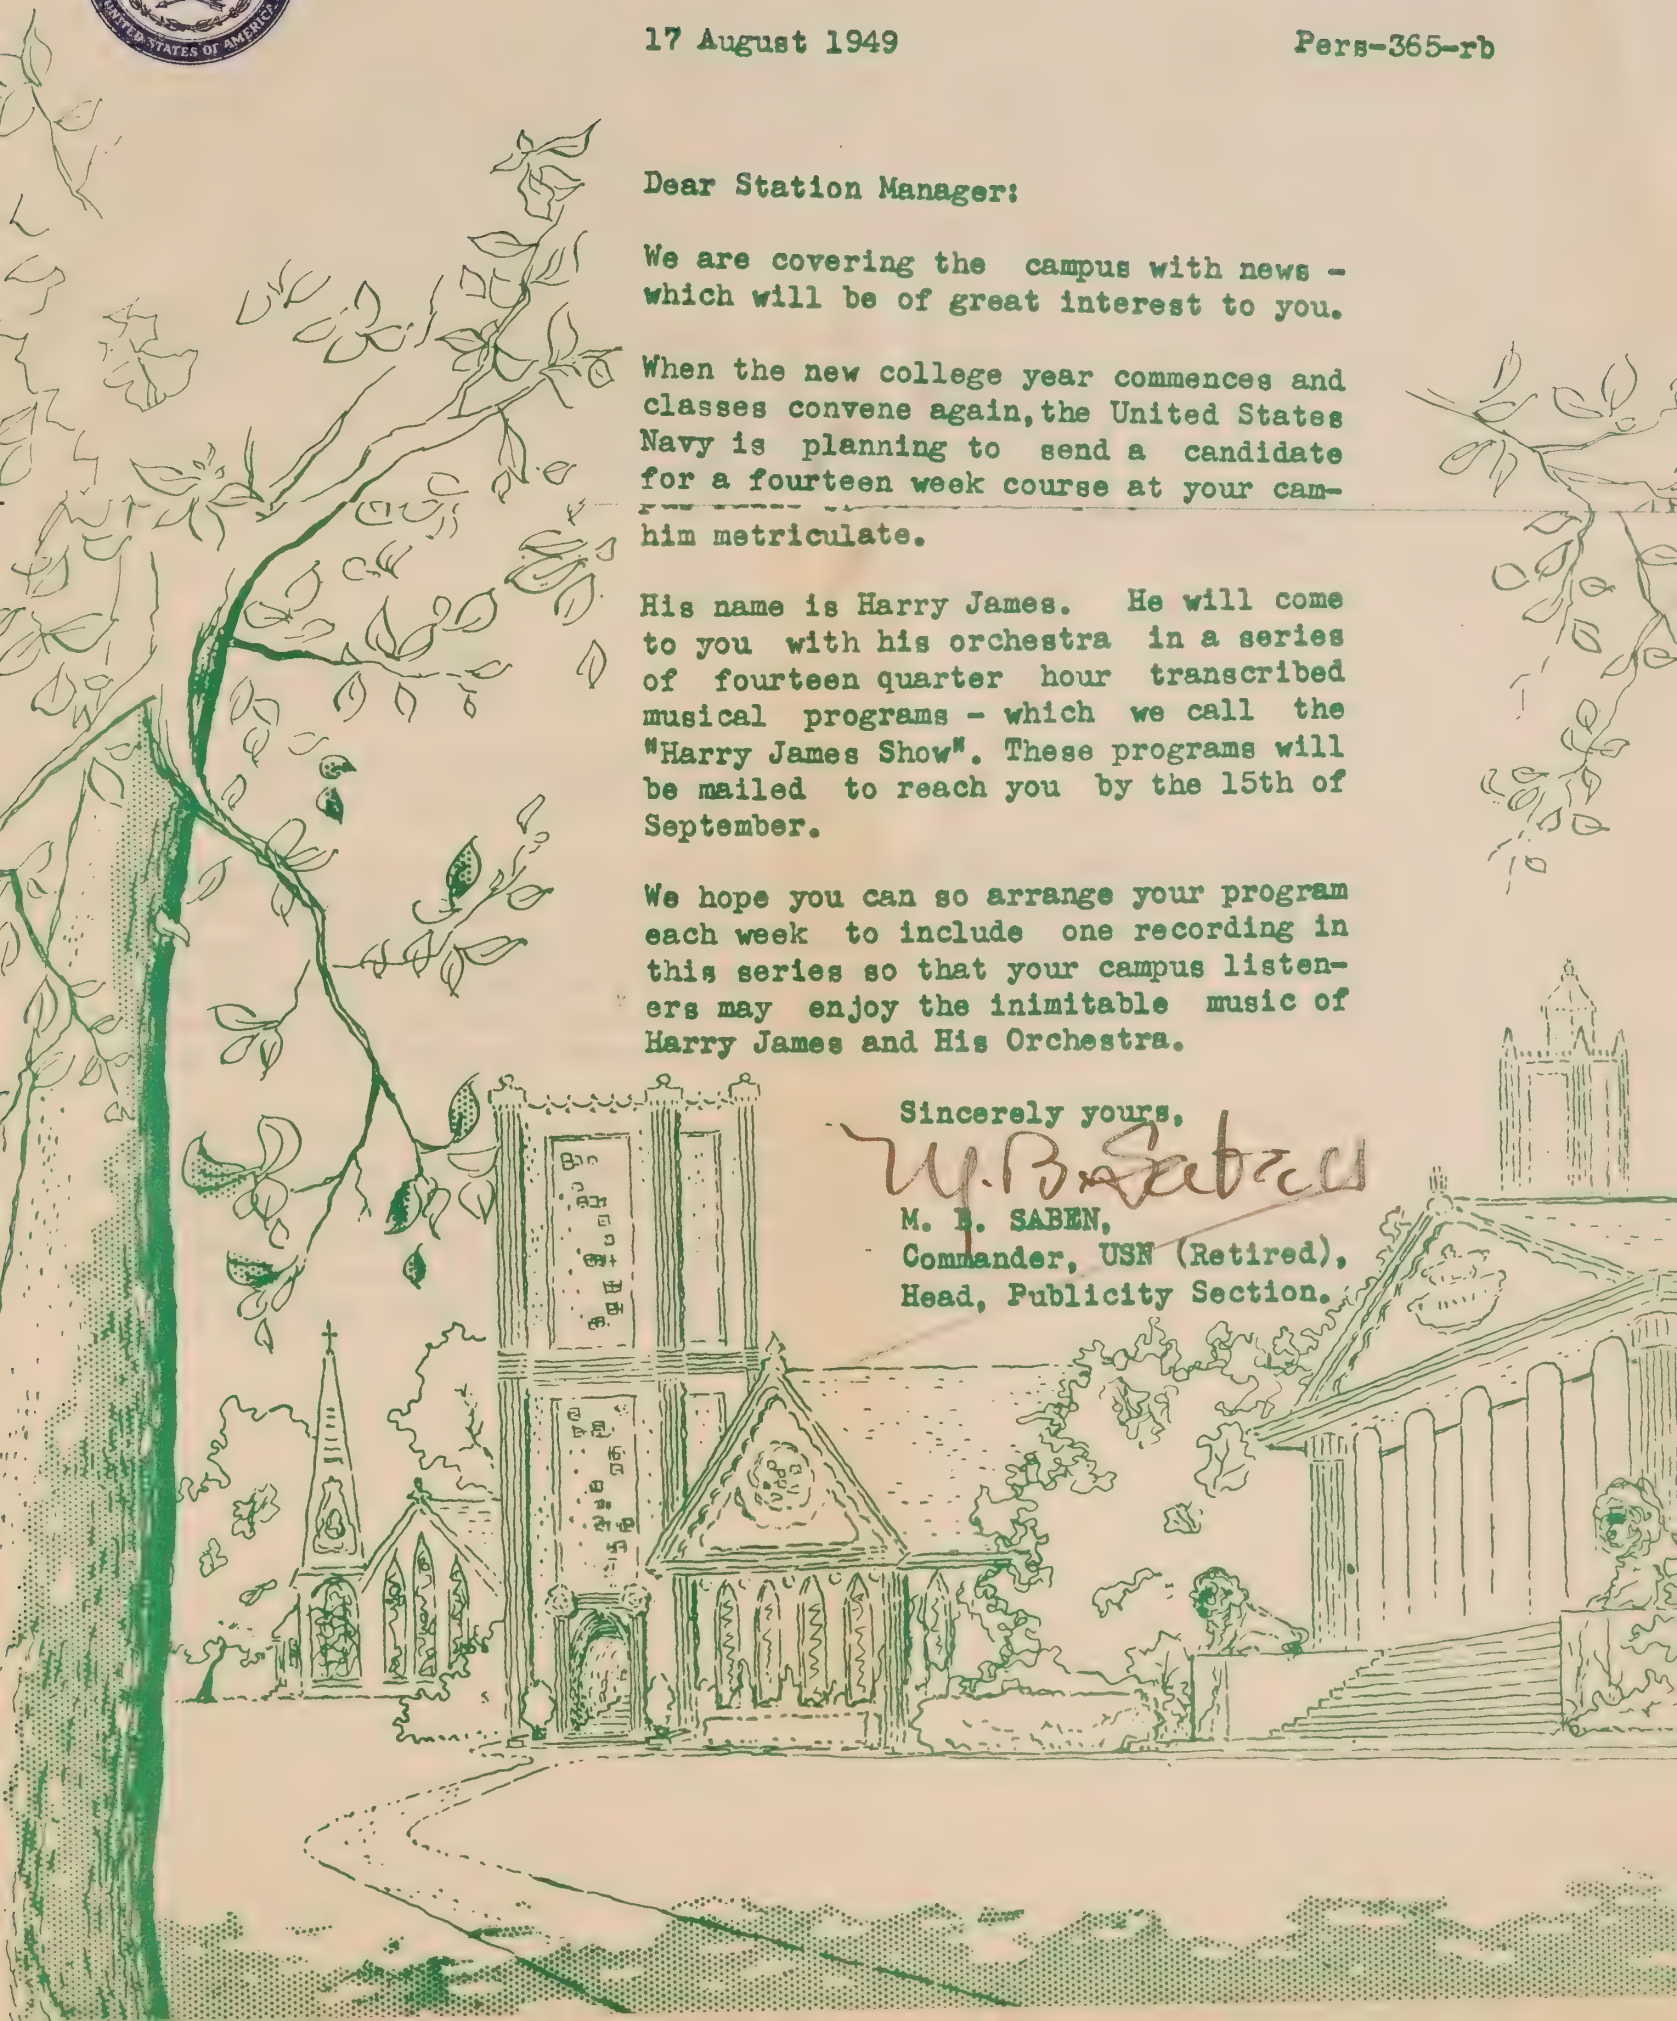 UNITED STATES OF AMERICA
17 August 1949 Pers-365-rb
Dear Station Manager:
We are covering the campus with news -
which will be of great interest to you.
When the new college year commences and
classes convene again, the United States
Navy is planning to send a candidate
for a fourteen week course at your cam-
him metriculate.
His name is Harry James. He will come
to you with his orchestra in a series
of fourteen quarter hour transcribed
musical programs - which we call the
"Harry James Show". These programs will
be mailed to reach you by the 15th of
September.
We hope you can so arrange your program
each week to include one recording in
this series so that your campus listen-
ers may enjoy the inimitable music of
Harry James and His Orchestra.
Sincerely yours,
M. B. Saben
M. B. SABEN,
Commander, USN (Retired),
Head, Publicity Section.